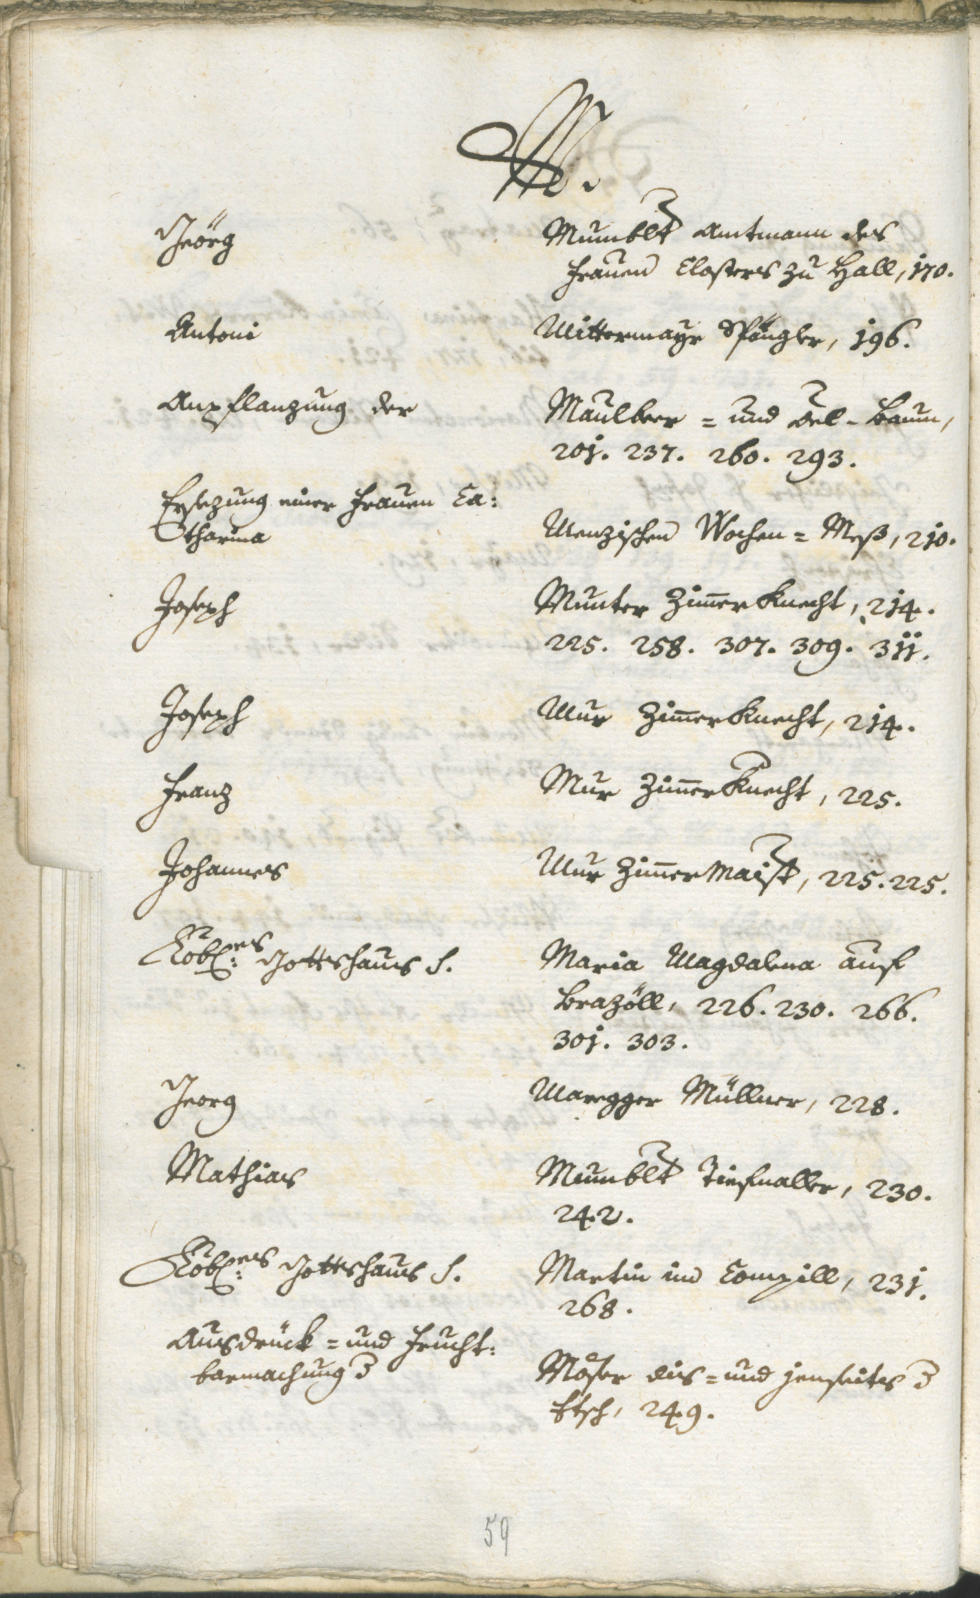 M.
Jeörg
Mumblter Amtmann des
Frauen Closters zu Hall, 170.
Antoni
Mittermayr Spängler, 196.
Anpflanzung der
Maulbeer = und Oel-Baum,
201. 237. 260. 293.
Ersezung einer Frauen Ca:
tharina
Menzischen Wochen = Meß, 210.
Joseph
Munter Zimmer Knecht, 214.
225. 258. 307. 309. 311.
Joseph
Mur Zimmer Knecht, 214.
Franz
Mur Zimmer Knecht, 225.
Johannes
Mur Zimmer Maist, 225. 225.
Löbl: es Gottshaus S.
Maria Magdalena auf
Brazöll, 226. 230. 266.
301. 303.
Georg
Maregger Müllner, 228.
Mathias
Mumblter 230.
242.
Löbl: es Gottshaus S.
Martin im Compill, 231.
268.
Ausdrück = und Frucht:
barmachung der
Möser dis = und jenseits der
Etsch, 249.
59